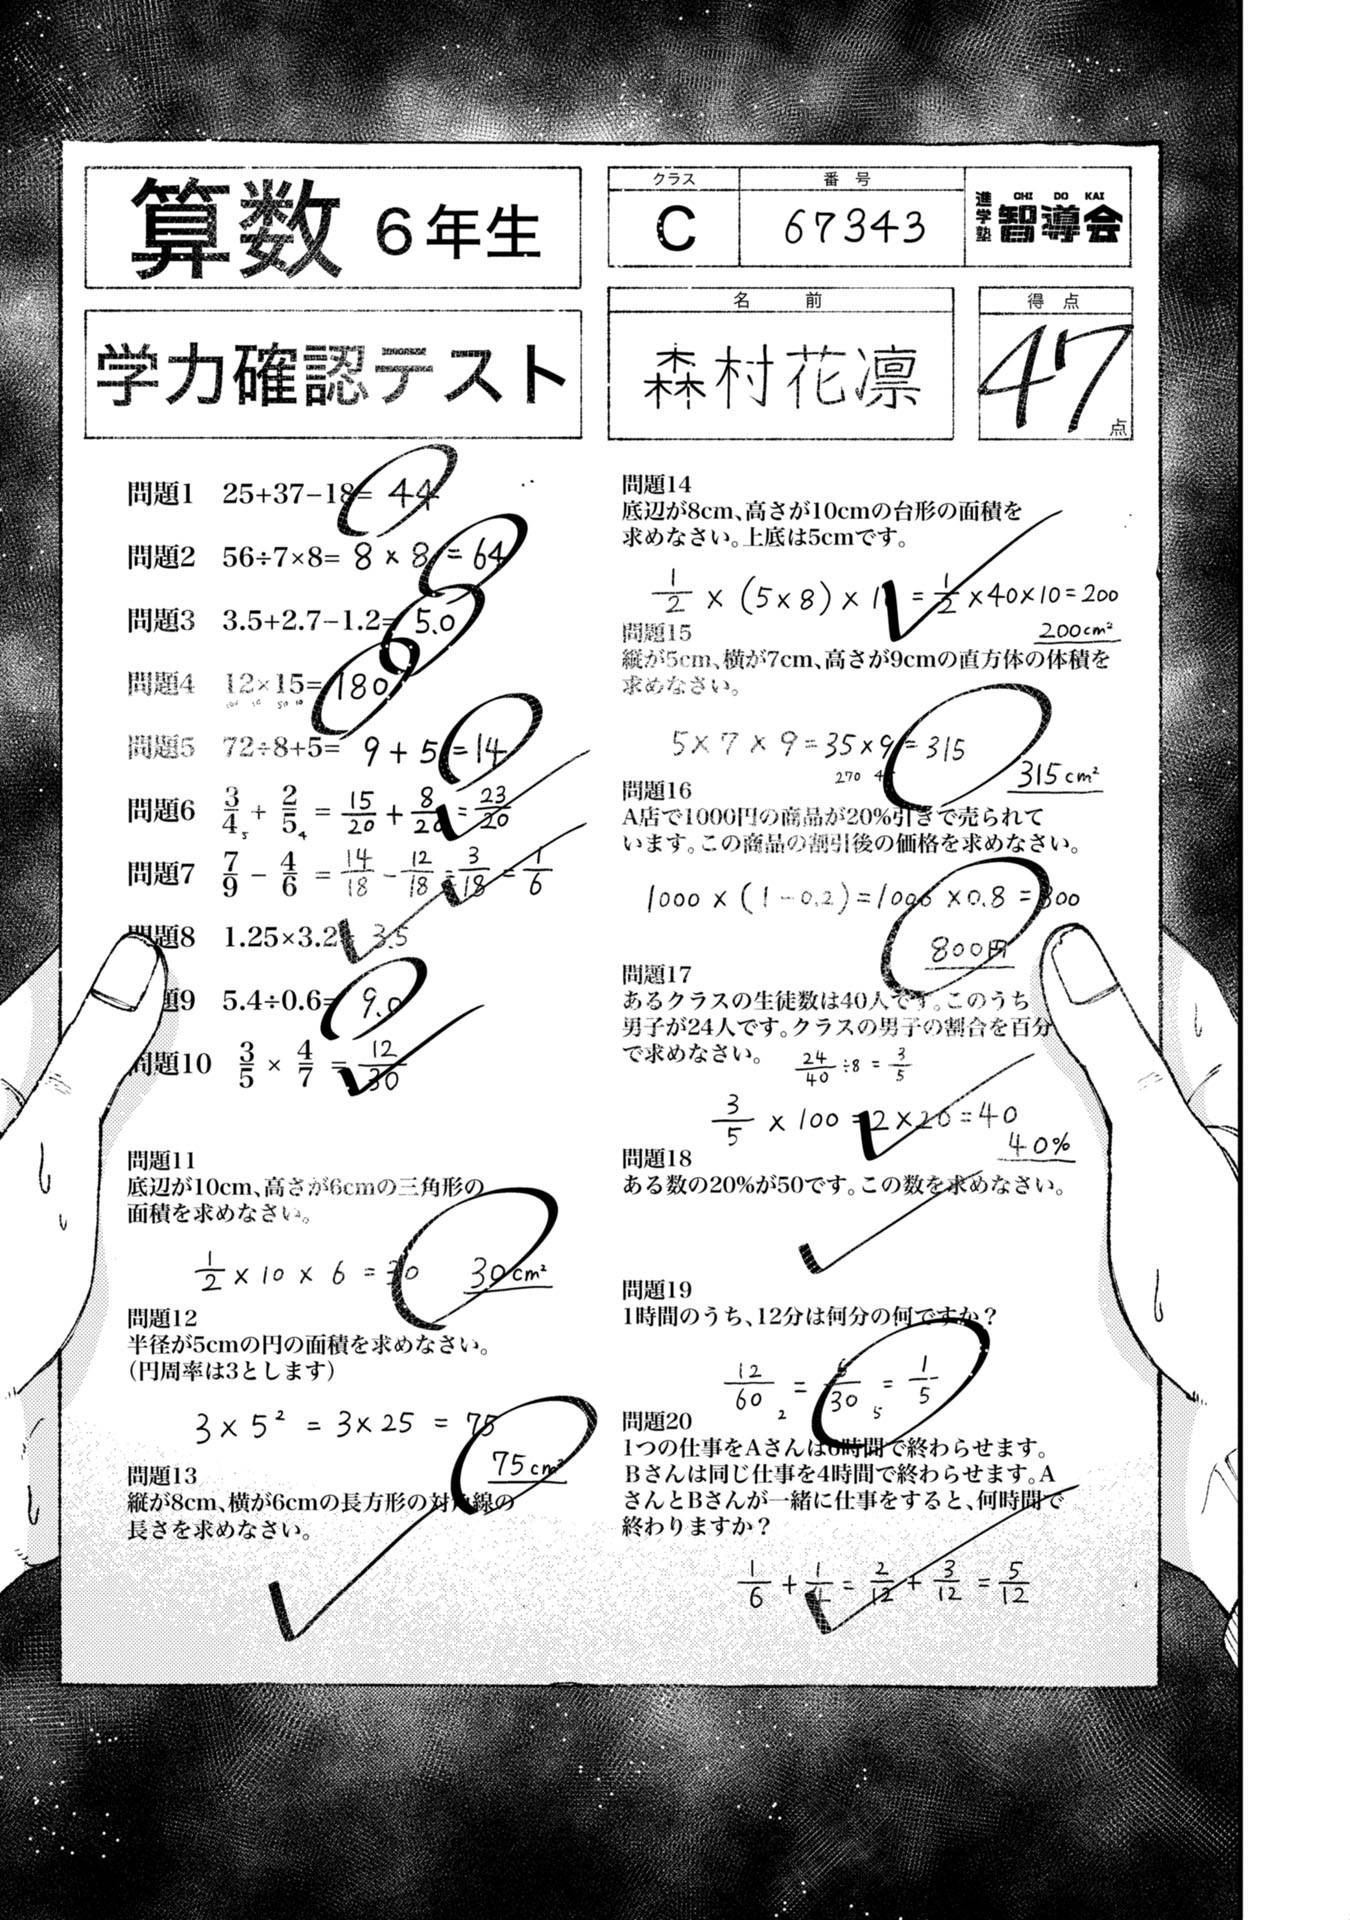 算数 6年生
学力確認テスト
クラス
C
番号
67343
進学塾
CHI DO KAI
智導会
名前
森村花凛
得点
47
点
問題1 25+37−18= 44
問題2 56÷7×8= 8×8=64
問題3 3.5+2.7−1.2= 5.0
問題4 12×15= 180
問題5 72÷8+5= 9+5=14
問題6 3/4 + 2/5 = 15/20 + 8/20 = 23/20
5 4
問題7 7/9 − 4/6 = 14/18 − 12/18 = 3/18 = 1/6
問題8 1.25×3.2= 3.5
題9 5.4÷0.6= 9.0
問題10 3/5 × 4/7 = 12/30
問題11
底辺が10cm、高さが6cmの三角形の
面積を求めなさい。
1/2 × 10 × 6 = 30
30cm²
問題12
半径が5cmの円の面積を求めなさい。
(円周率は3とします)
3×5² = 3×25 = 75
75cm²
問題13
縦が8cm、横が6cmの長方形の対角線の
長さを求めなさい。
問題14
底辺が8cm、高さが10cmの台形の面積を
求めなさい。上底は5cmです。
1/2 × (5×8) × 10 = 1/2 ×40×10=200
200cm²
問題15
縦が5cm、横が7cm、高さが9cmの直方体の体積を
求めなさい。
5×7×9=35×9=315
270
315cm²
問題16
A店で1000円の商品が20%引きで売られて
います。この商品の割引後の価格を求めなさい。
1000×(1−0.2)=1000×0.8=800
800円
問題17
あるクラスの生徒数は40人です。このうち
男子が24人です。クラスの男子の割合を百分
で求めなさい。
24/40 ÷8 = 3/5
3/5 × 100 = 2×20=40
40%
問題18
ある数の20%が50です。この数を求めなさい。
問題19
1時間のうち、12分は何分の何ですか？
12/60 = 6/30 = 1/5
2 5
問題20
1つの仕事をAさんは6時間で終わらせます。
Bさんは同じ仕事を4時間で終わらせます。A
さんとBさんが一緒に仕事をすると、何時間で
終わりますか？
1/6 + 1/4 = 2/12 + 3/12 = 5/12